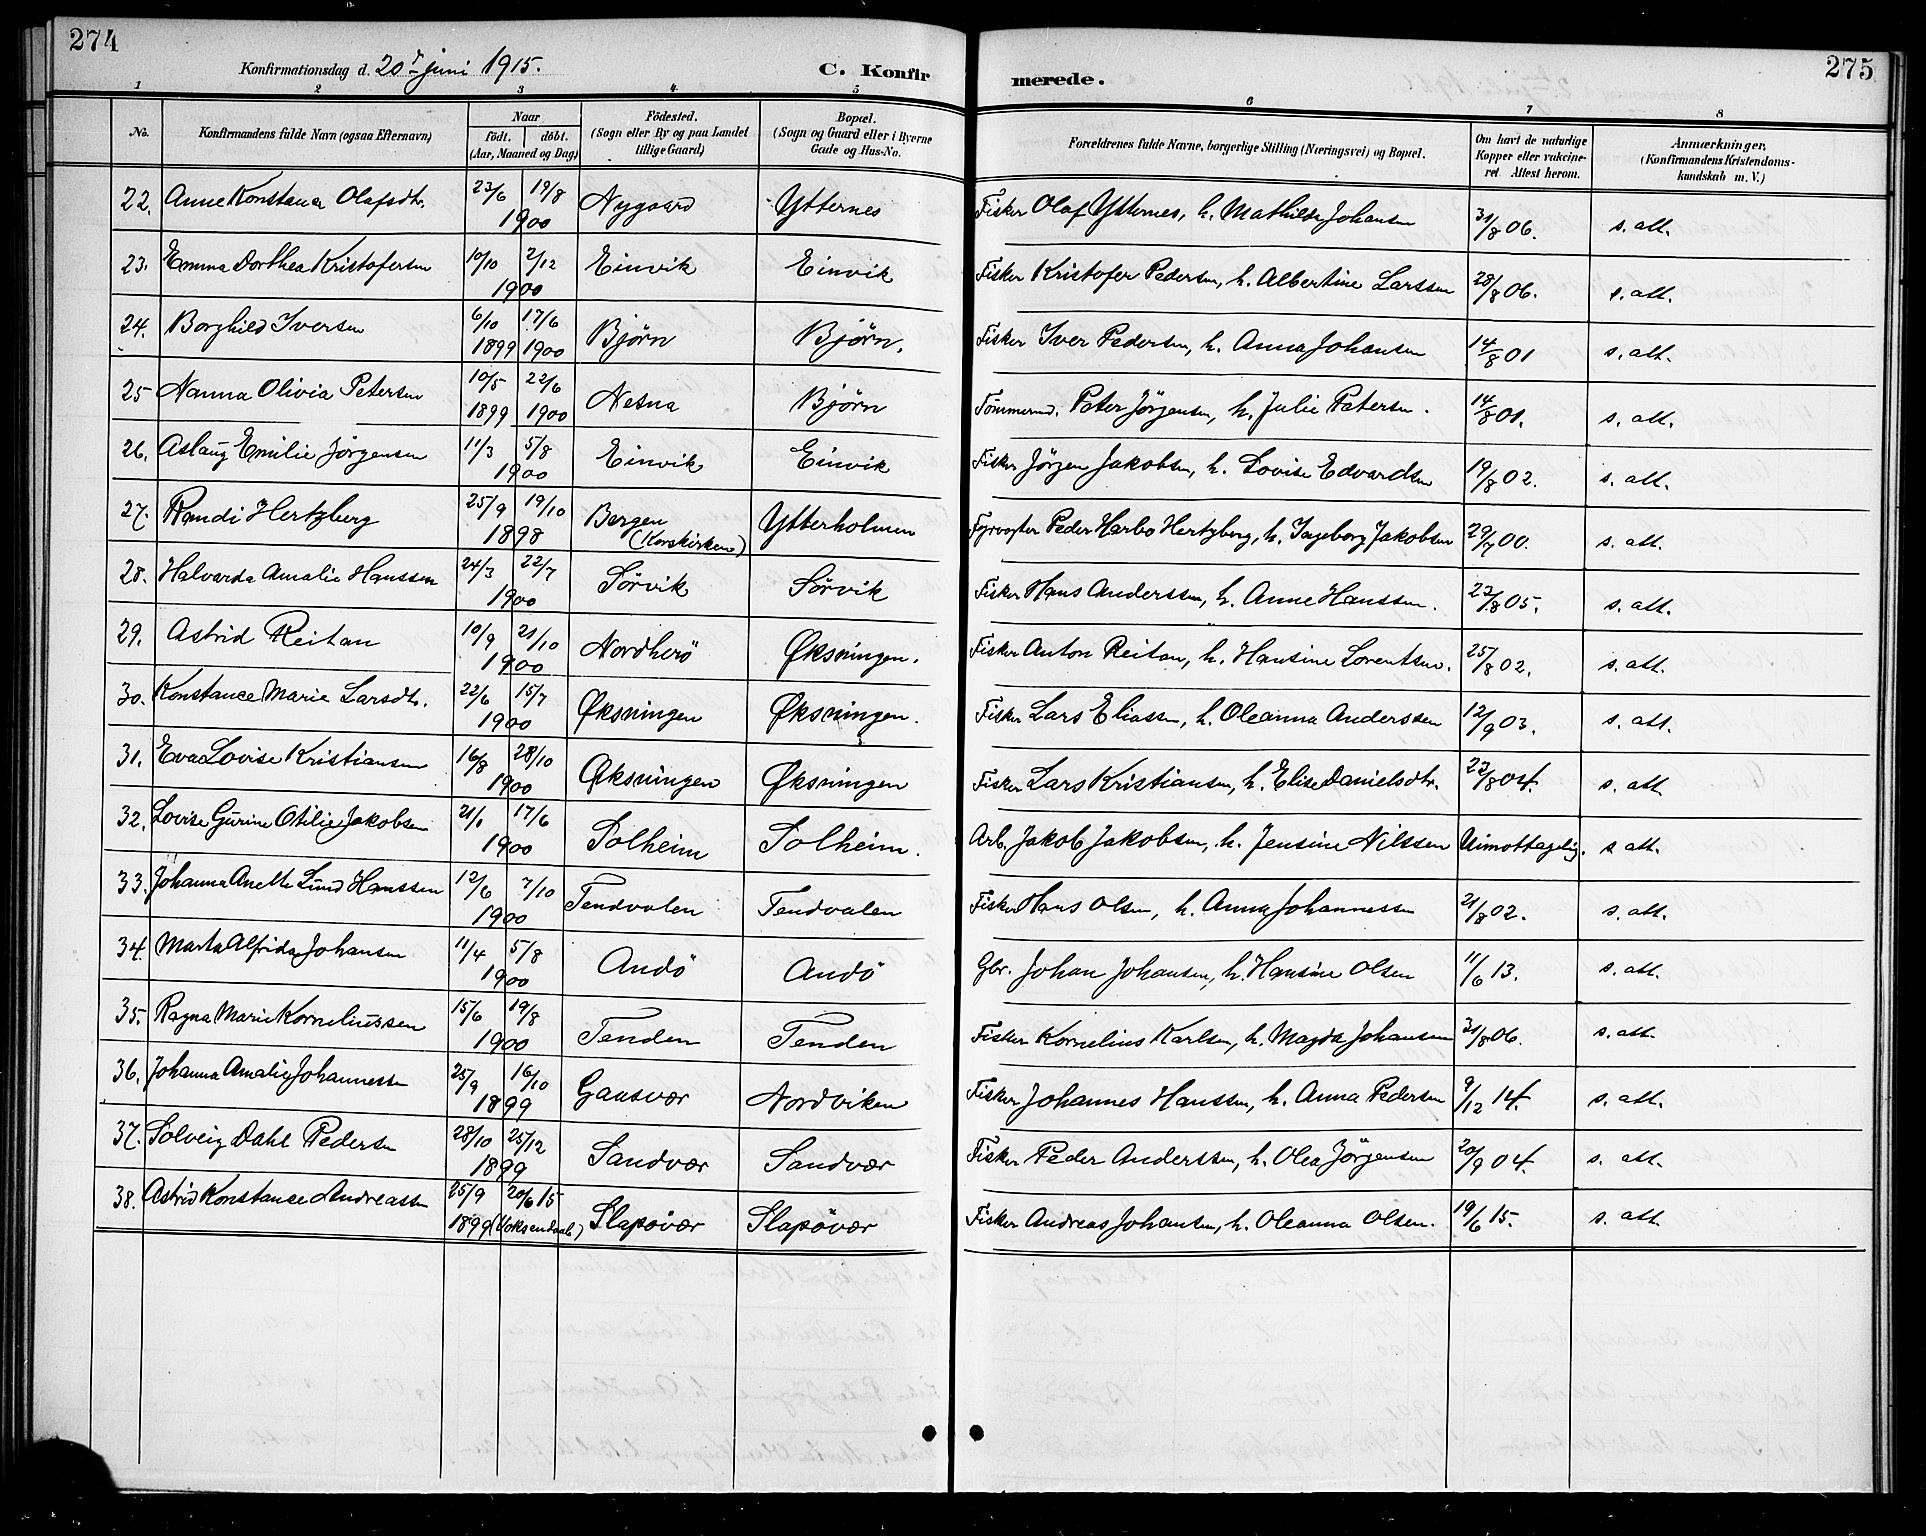 274
275
Konfirmationsdag d. 20de juni 1915.
C. Konfirmerede.
1 2 3 4 5 6 7 8
No. Konfirmandens fulde Navn (ogsaa Efternavn) Naar födt. döbt. (Aar, Maaned og Dag) Födested. (Sogn eller By og paa Landet tillige Gaard) Bopæl. (Sogn og Gaard eller i Byerne Gade og Hus-No. Forældrenes fulde Navne, borgerlige Stilling (Næringsvei) og Bopæl. Om havt de naturlige Kopper eller vakcineret. Attest herom. Anmærkninger. (Konfirmandens Kristendomskundskab m. V.)
22. Anne Konstance Olafsdtr. 23/6 19/8 1900 Nygaard Ytternes Fisker Olaf Ytternes, h. Mathilde Johansen 31/8 06. s. att.
23. Emma Dorthea Kristofersen 10/10 2/12 1900 Einvik Einvik Fisker Kristofer Pedersen, h. Albertine Larssen 28/8 06. s. att.
24. Borghild Iversen 6/10 1899 17/6 1900 Bjørn Bjørn. Fisker Iver Pedersen, h. Anna Johansen 14/8 01 s. att.
25 Nanna Olivia Petersen 10/5 1899 22/6 1900 Nesna Bjørn Tömmermd. Peter Jörgensen, h. Julie Petersen. 14/8 01. s. att.
26. Aslaug Emilie Jörgensen 11/3 5/8 1900 Einvik Einvik Fisker Jörgen Jakobsen, h. Lovise Edvardsen 19/8 02. s. att.
27. Randi Hertzberg 25/9 19/10 1898 Bergen (Korskirken) Ytterholmen Fyrvogter Peder Harbo Hertzberg, h. Ingeborg Jakobsen 27/7 00. s. att.
28. Halvarda Amalie Hanssen 24/3 22/7 1900 Sörvik Sörvik Fisker Hans Anderssen, h. Anne Hanssen. 23/8 05. s. att.
29. Astrid Reitan 10/9 21/10 1900 Nordherö Øksningen. Fisker Anton Reitan, h. Hansine Lorentsen. 25/8 02. s. att.
30. Konstance Marie Larsdtr. 22/6 15/7 1900 Øksningen Øksningen. Fisker Lars Eliassen, h. Oleanna Anderssen 12/9 03. s. att.
31. Eva Lovise Kristiansen 16/8 28/10 1900 Øksningen Øksningen Fisker Lars Kristiansen, h. Elise Danielsdtr. 23/8 04. s. att.
32. Lovise Gurine Otilie Jakobsen 21/1 17/6 1900 Solheim Solheim. Arb. Jakob Jakobsen, h. Jensine Nilssen Uimottagelig. s att.
33. Johanna Anette Lund Hanssen 12/6 7/10 1900 Tendvalen Tendvalen Fisker Hans Olsen, h. Anna Johannessen 21/8 02. s. att.
34. Marta Alfrida Johansen 11/4 5/8 1900 Andö Andö Gbr. Johan Johansen, h. Hansine Olsen 11/6 13. s. att.
35. Ragna Marie Korneliussen 15/6 19/8 1900 Tenden Tenden Fisker Kornelius Karlsen, h. Magda Johansen 31/8 06. s. att.
36. Johanna Amalie Johannessen 25/9 16/10 1899 Gaasvær Nordviken Fisker Johannes Hanssen, h. Anna Pedersen 9/12 14. s. att.
37. Solveig Dahl Pedersen 28/10 25/12 1899 Sandvær Sandvær Fisker Peder Anderssen, h. Olea Jörgensen 20/9 04. s. att.
38. Astrid Konstance Andreassen 25/9 1899 20/6 15 (Voksendaab) Slapövær Slapövær Fisker Andreas Johansen, h. Oleanna Olsen. 19/6 15. s. att.